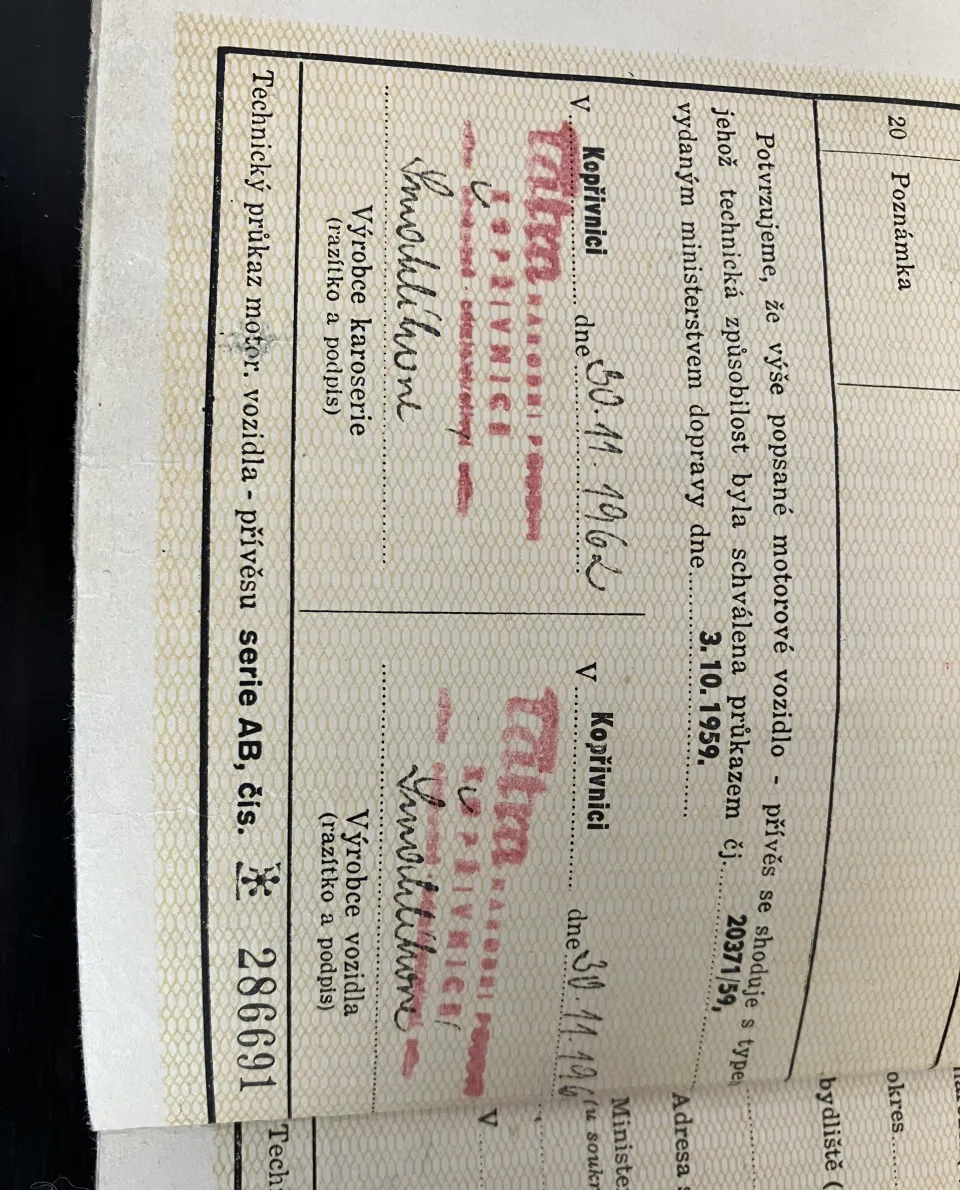 20 Poznámka
Potvrzujeme, že výše popsané motorové vozidlo - přívěs se shoduje s typem
jehož technická způsobilost byla schválena průkazem čj. 20371/59,
vydaným ministerstvem dopravy dne 3. 10. 1959.
V Kopřivnici dne 30. 11. 1962
Tatra NÁRODNÍ PODNIK
KOPŘIVNICE
Výrobce karoserie
(razítko a podpis)
V Kopřivnici dne 30. 11. 196
Tatra NÁRODNÍ PODNIK
KOPŘIVNICE
Výrobce vozidla
(razítko a podpis)
Technický průkaz motor. vozidla - přívěsu serie AB, čís. 286691
okres
bydliště (
Adresa
Minister
(u soukr
V
Techn